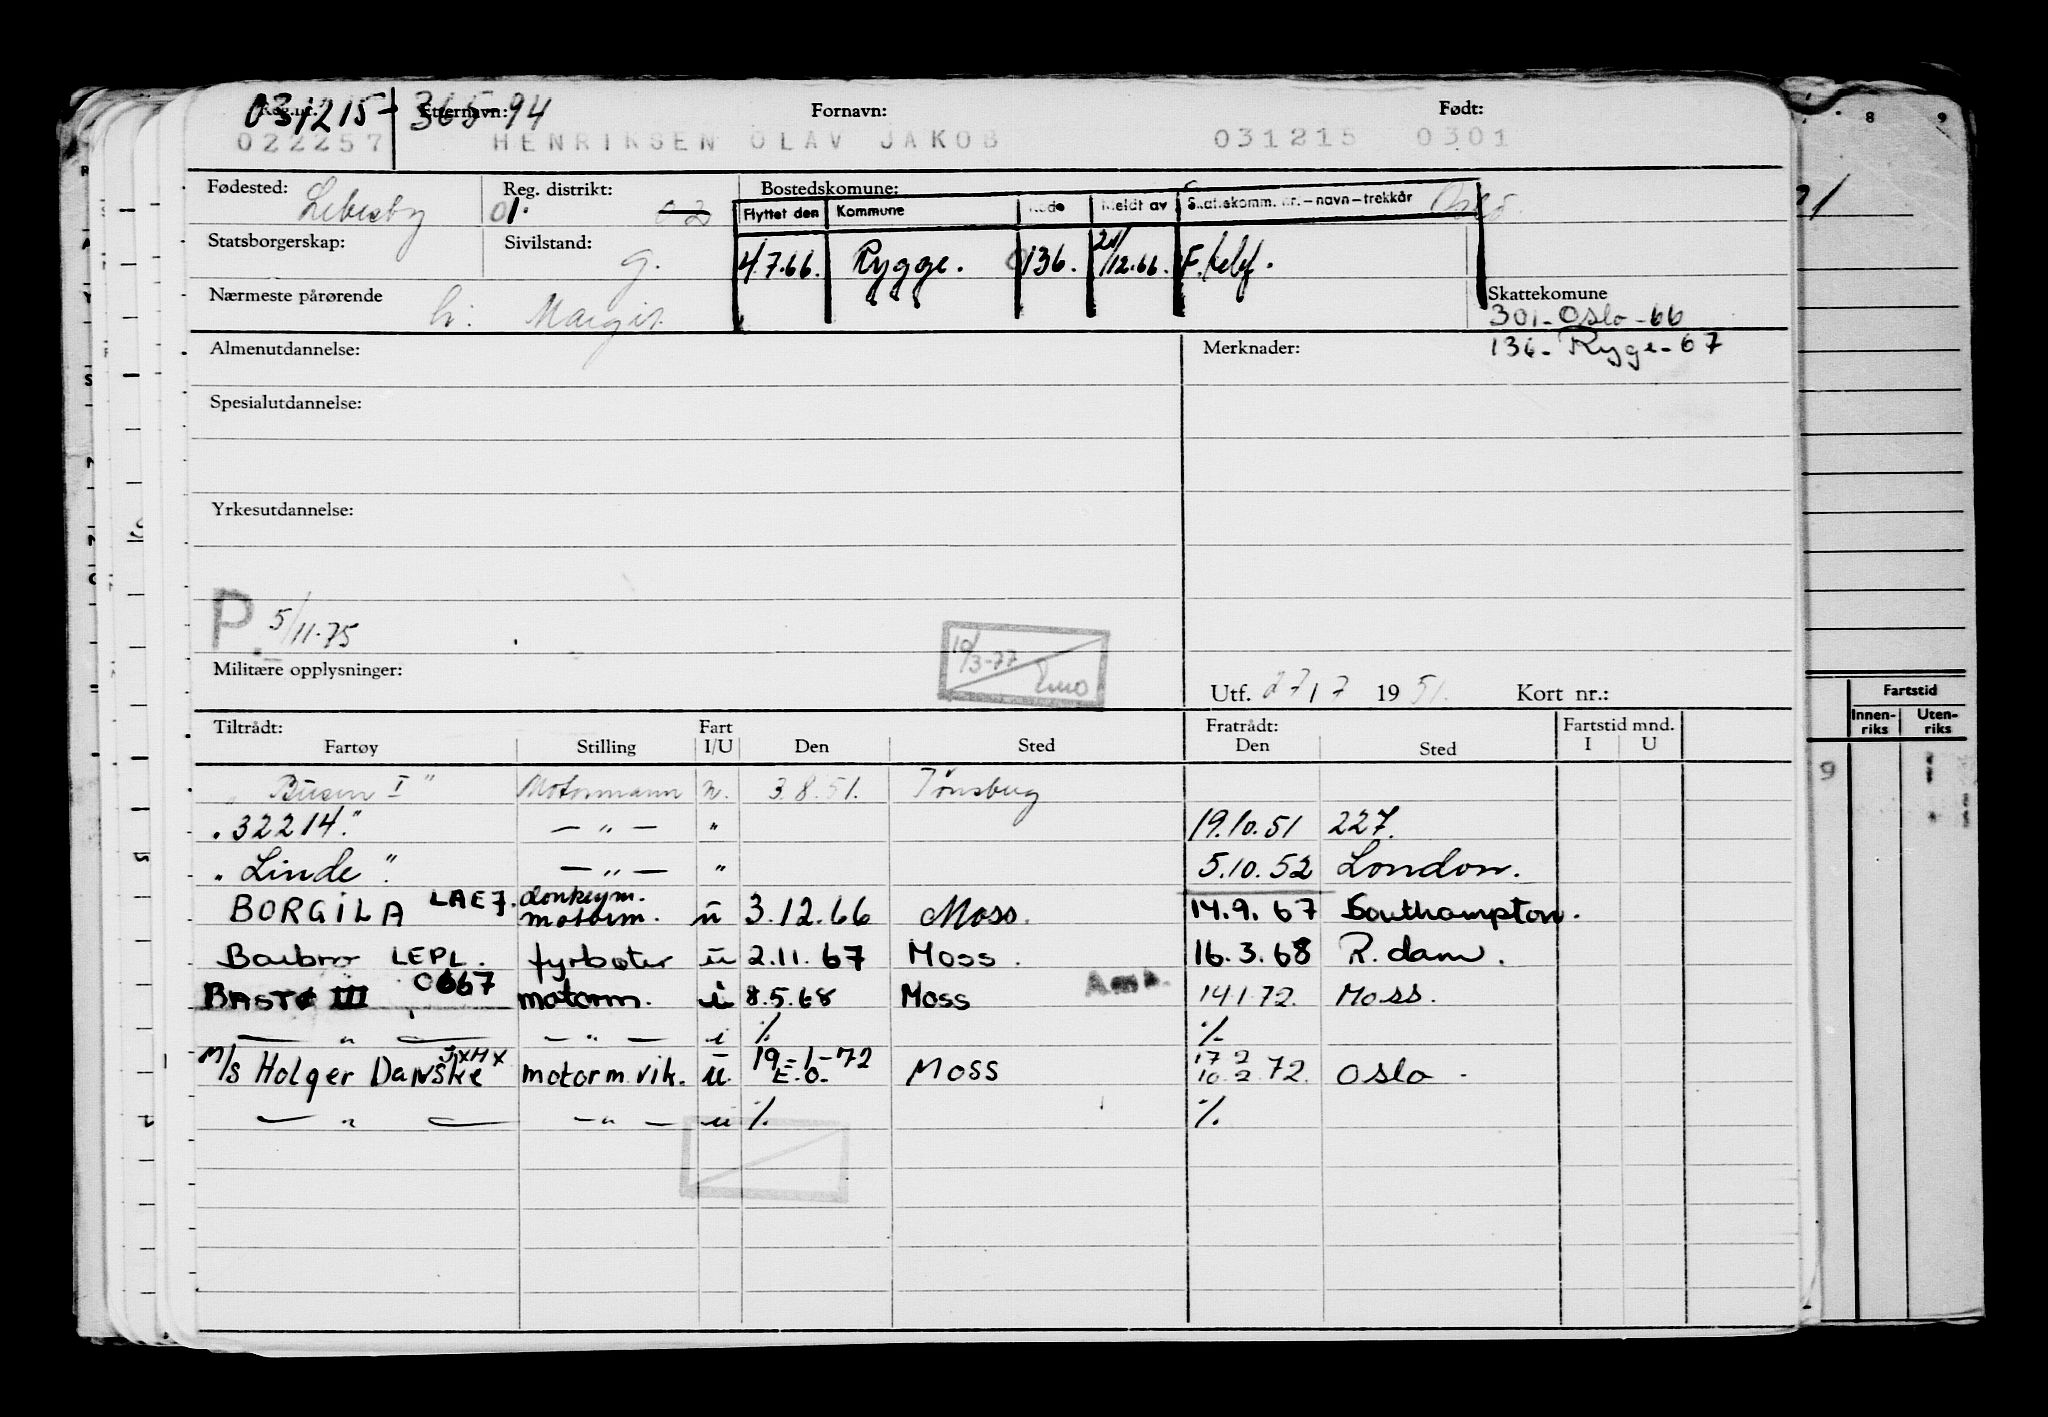 031215-36594
Reg.nr. Etternavn: Fornavn: Født:
022257 HENRIKSEN OLAV JAKOB 031215 0301
Fødested: Lebesby Reg. distrikt: 01. 02 Bostedskomune: Oslo
Flyttet den Kommune Kode Meldt av Skattekomm. nr.-navn-trekkår
Statsborgerskap: Sivilstand: g. 4/7.66. Rygge. 0136. 21/12.66. F.
Nærmeste pårørende h. Margit. Skattekomune
301-Oslo-66
Almenutdannelse: Merknader: 136-Rygge-67
Spesialutdannelse:
Yrkesutdannelse:
P. 5/11.75
10/3-77
Militære opplysninger: Utf. 27/7 1951. Kort nr.:
Tiltrådt: Fart Fratrådt: Fartstid mnd.
Fartøy Stilling I/U Den Sted Den Sted I U
"Busen I" Motormann u. 3.8.51. Tønsberg
"32214." — " — " 19.10.51 227.
"Linde". — " — " 5.10.52 London.
BORGILA LAE7. donkeym. motorm. u 3.12.66 Moss. 14.9.67 Southampton.
Barbro LEPL. fyrbøter u 2.11.67 Moss. 16.3.68 R.dam.
BASTØ III 0667 motorm. i 8.5.68 Moss 14.1.72. Moss.
— " — — " — i % %
M/S Holger Danske JXHX motorm.vik. u. 19-1-72 E.O. Moss 17 2 10.2.72. Oslo.
— " — — " — u % %
8 9
Fartstid
Innenriks Utenriks
9